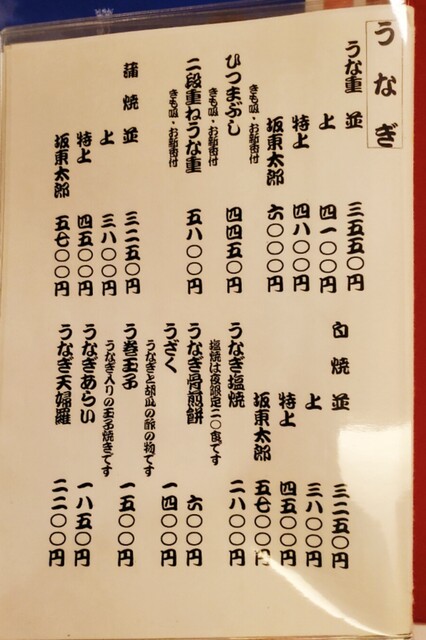 うなぎ
うな重 並 三五五〇円
上 四一〇〇円
特上 四八〇〇円
坂東太郎 六〇〇〇円
きも吸・お新香付
ひつまぶし 四四五〇円
きも吸・お新香付
二段重ねうな重 五八〇〇円
きも吸・お新香付
蒲焼 並 三二五〇円
上 三八〇〇円
特上 四五〇〇円
坂東太郎 五七〇〇円
白焼 並 三二五〇円
上 三八〇〇円
特上 四五〇〇円
坂東太郎 五七〇〇円
うなぎ塩焼 二八〇〇円
塩焼は夜限定二〇食です
うなぎ骨煎餅 六〇〇円
うざく 一四〇〇円
うなぎと胡瓜の酢の物です
う巻玉子 一五〇〇円
うなぎ入りの玉子焼きです
うなぎあらい 一八五〇円
うなぎ天婦羅 二二〇〇円